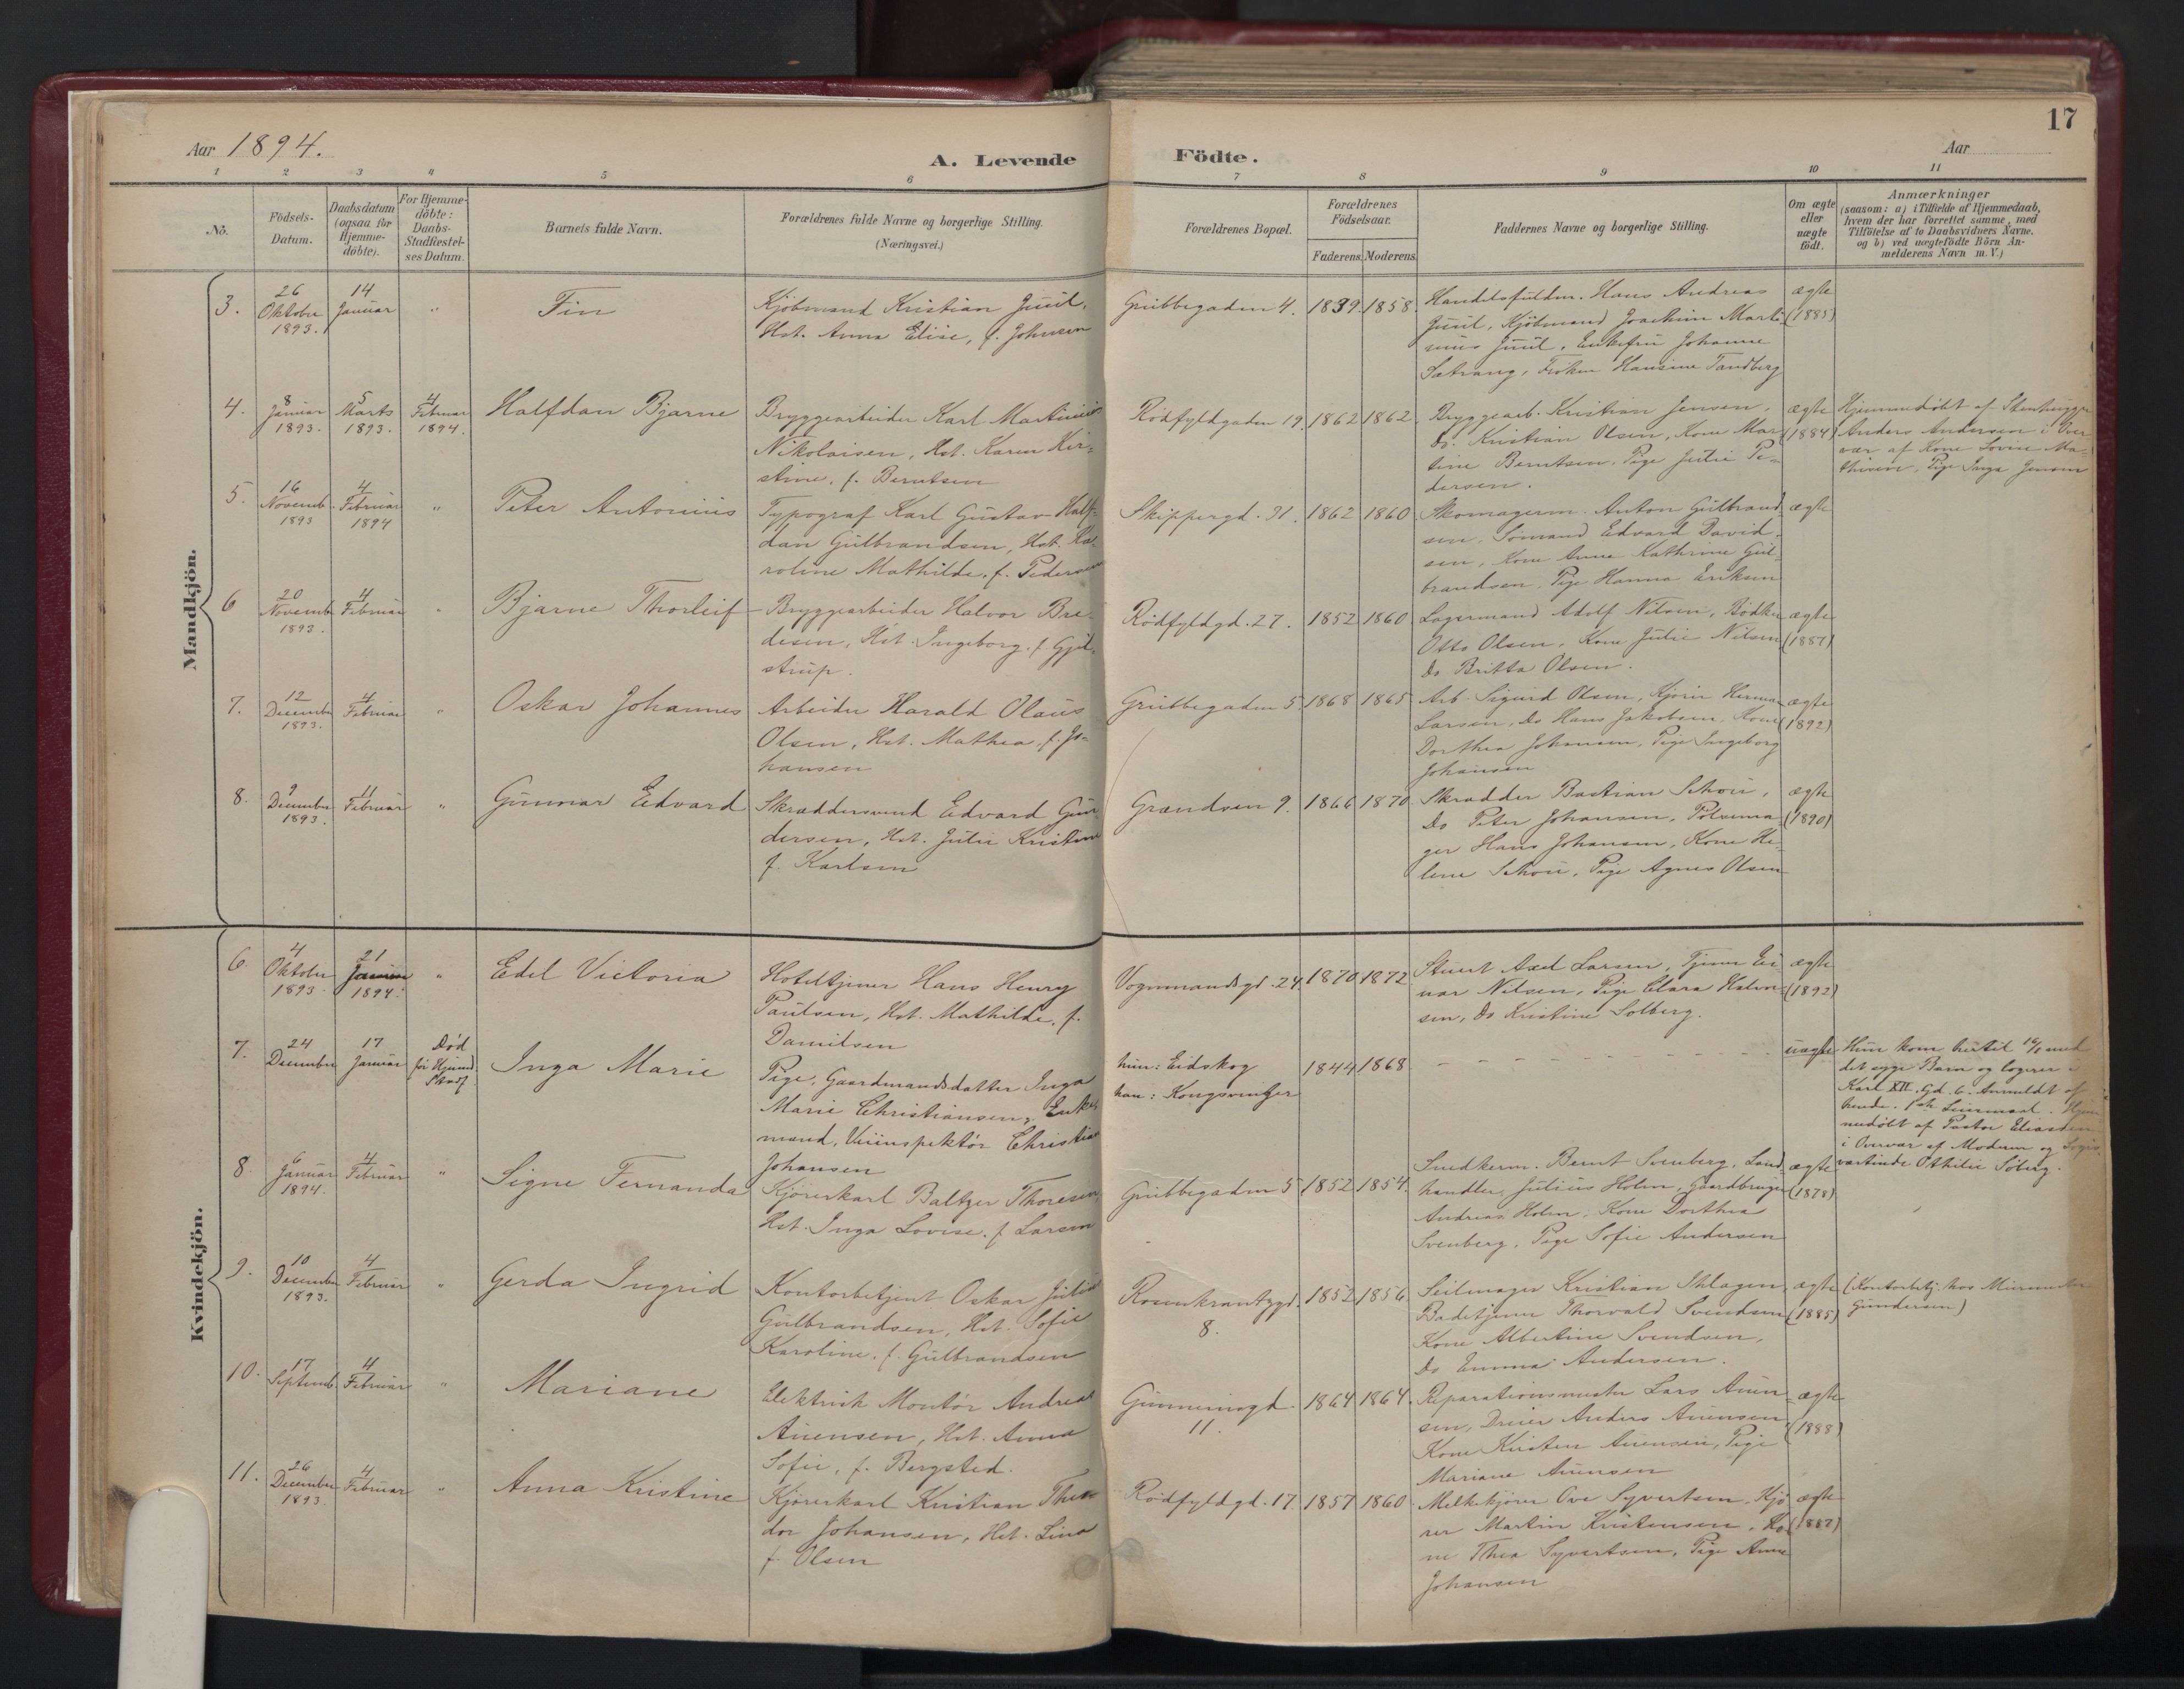 17
Aar 1894.
A. Levende
Födte.
Aar
1 2 3 4 5 6 7 8 9 10 11
No.
Födsels-
Datum.
Daabsdatum
(ogsaa for
Hjemme-
döbte).
For Hjemme-
döbte:
Daabs-
Stadfæstel-
ses Datum.
Barnets fulde Navn.
Forældrenes fulde Navne og borgerlige Stilling.
(Næringsvei.)
Forældrenes Bopæl.
Forældrenes
Födselsaar.
Faderens. Moderens.
Faddernes Navne og borgerlige Stilling.
Om ægte
eller
uægte
födt.
Anmærkninger
(saasom: a) i Tilfælde af Hjemmedaab,
hvem der har forrettet samme, med
Tilföielse af to Daabsvidners Navne,
og b) ved uægtefödte Börn An-
melderens Navn m. V.)
Mandkjön.
3.
26
Oktober
1893.
14
Januar
"
Fin
Kjöbmand Kristian Juul,
Hst. Anna Elise, f. Johnsen
Grubbegaden 4.
1839. 1858.
Handelsfuldm. Hans Andreas
Juul, Kjöbmand Joachim Marti-
nius Juul, Enkefru Johanne
Sætrang, Fröken Hansine Tandberg
ægte
(1885)
4.
8
Januar
1893.
5
Marts
1893.
4
Februar
1894.
Halfdan Bjarne
Bryggearbeider Karl Martinius
Nikolaisen, Hst. Karen Kir-
stine, f. Berntsen
Rödfyldgaden 19.
1862 1862.
Bryggearb. Kristian Jensen,
Do. Kristian Olsen, Kone Mar-
tine Berntsen, Pige Julie Pe-
dersen.
ægte
(1884)
Hjemmedöbt af Stenhugger
Anders Andersen i Over-
vær af Kone Lovise Ma-
thisen, Pige Inga Jensen
5.
16
Novemb.
1893
4
Februar
1894
"
Peter Antonius
Typograf Karl Gustav Half-
dan Gulbrandsen, Hst. Ka-
roline Mathilde, f. Pedersen
Skippergd. 31.
1862 1860
Skomagerm. Anton Gulbrand-
sen, Sömand Edvard David-
sen, Kone Anne Kathrine Gul-
brandsen, Pige Hanna Eriksen
ægte
6
20
Novemb.
1893.
4
Februar
"
Bjarne Thorleif
Bryggearbeider Halvor Bre-
desen, Hst. Ingeborg, f. Gjel-
strup.
Rödfyldgd. 27.
1852 1860
Lagermand Adolf Nilsen, Bödker
Otto Olsen, Kone Julie Nilsen,
Do Britta Olsen.
ægte
(1887)
7.
12
December
1893.
4
Februar
"
Oskar Johannes
Arbeider Harald Olaus
Olsen, Hst. Mathea, f. Jo-
hansen
Grubbegaden 5.
1868 1865
Arb. Sigurd Olsen, Kjörer Herman
Larsen, Do Hans Jakobsen, Kone
Dorthea Johansen, Pige Ingeborg
Johansen
ægte
(1892)
8.
9
December
1893.
11
Februar
"
Gunnar Edvard
Skræddersvend Edvard Gun-
dersen, Hst. Julie Kristine
f. Karlsen
Grændsen 9.
1866 1870
Skrædder Bastian Schou,
Do Peter Johansen, Pölsema-
ger Hans Johansen, Kone He-
lene Schou, Pige Agnes Olsen
ægte
(1890)
Kvindekjön.
6.
4
Oktober
1893
21
Januar
1894.
"
Edel Victoria
Hoteltjener Hans Henry
Paulsen, Hst. Mathilde, f.
Danielsen
Vognmandsgd. 24.
1870 1872
Stuert Axel Larsen, Tjener Ei-
nar Nilsen, Pige Clara Halvor-
sen, Do Kristine Solberg.
ægte
(1892)
7.
24
December
17
Januar
Död
för Hjemmed.
Stadf.
Inga Marie
Pige, Gaardmandsdatter Inga
Marie Christiansen, Enke-
mand, Veiinspektör Christian
Johansen
hun: Eidskog
han: Kongsvinger
1844 1868
uægte
Hun kom hertil med
det syge Barn og logerer i
Karl XII. Gd. 6. Anmeldt af
hende. Leiermaal. Hjem-
medöbt af Pastor
i Overvær af Moderen og Logis-
vertinde Othilie Söberg.
8
6
Januar
1894.
4
Februar
"
Signe Fernanda
Kjörerkarl Baltzer Thoresen
Hst. Inga Lovise, f. Larsen
Grubbegaden 5
1852 1854.
Snedkerm. Bernt Svenberg, Land-
handler Julius Holm, Gaardbruger
Andreas Holm, Kone Dorthea
Svenberg, Pige Sofie Andersen
ægte
(1878)
9.
10
December
1893.
4
Februar
"
Gerda Ingrid
Kontorbetjent Oskar Julius
Gulbrandsen, Hst. Sofie
Karoline, f. Gulbrandsen
Rosenkrantzgd.
8.
1852 1856
Seilmager Kristian
Badetjener Thorvald Svendsen
Kone Albertine Svendsen,
Do Emma Andersen.
ægte
(1885)
(Kontorbetj. hos Murmester
Gundersen)
10.
17
Septemb.
4
Februar
"
Mariane
Elektrisk Montör Andreas
Auensen, Hst. Anna
Sofie, f. Bergsted.
Munningd.
11.
1864 1864.
Reparationsmester Lars Auen-
sen, Dreier Anders Auensen,
Kone Kirsten Auensen, Pige
Mariane Auensen
ægte
(1888)
11.
26
December
1893.
4
Februar
"
Anna Kristine
Kjörerkarl Kristian Theo-
dor Johansen, Hst. Lina
f. Olsen
Rödfyldgd. 17.
1857 1860
Melkekjörer Ove Syvertsen, Kjö-
rer Martin Kristensen, Ko-
ne Thea Syvertsen, Pige Anna
Johansen
ægte
(1882)